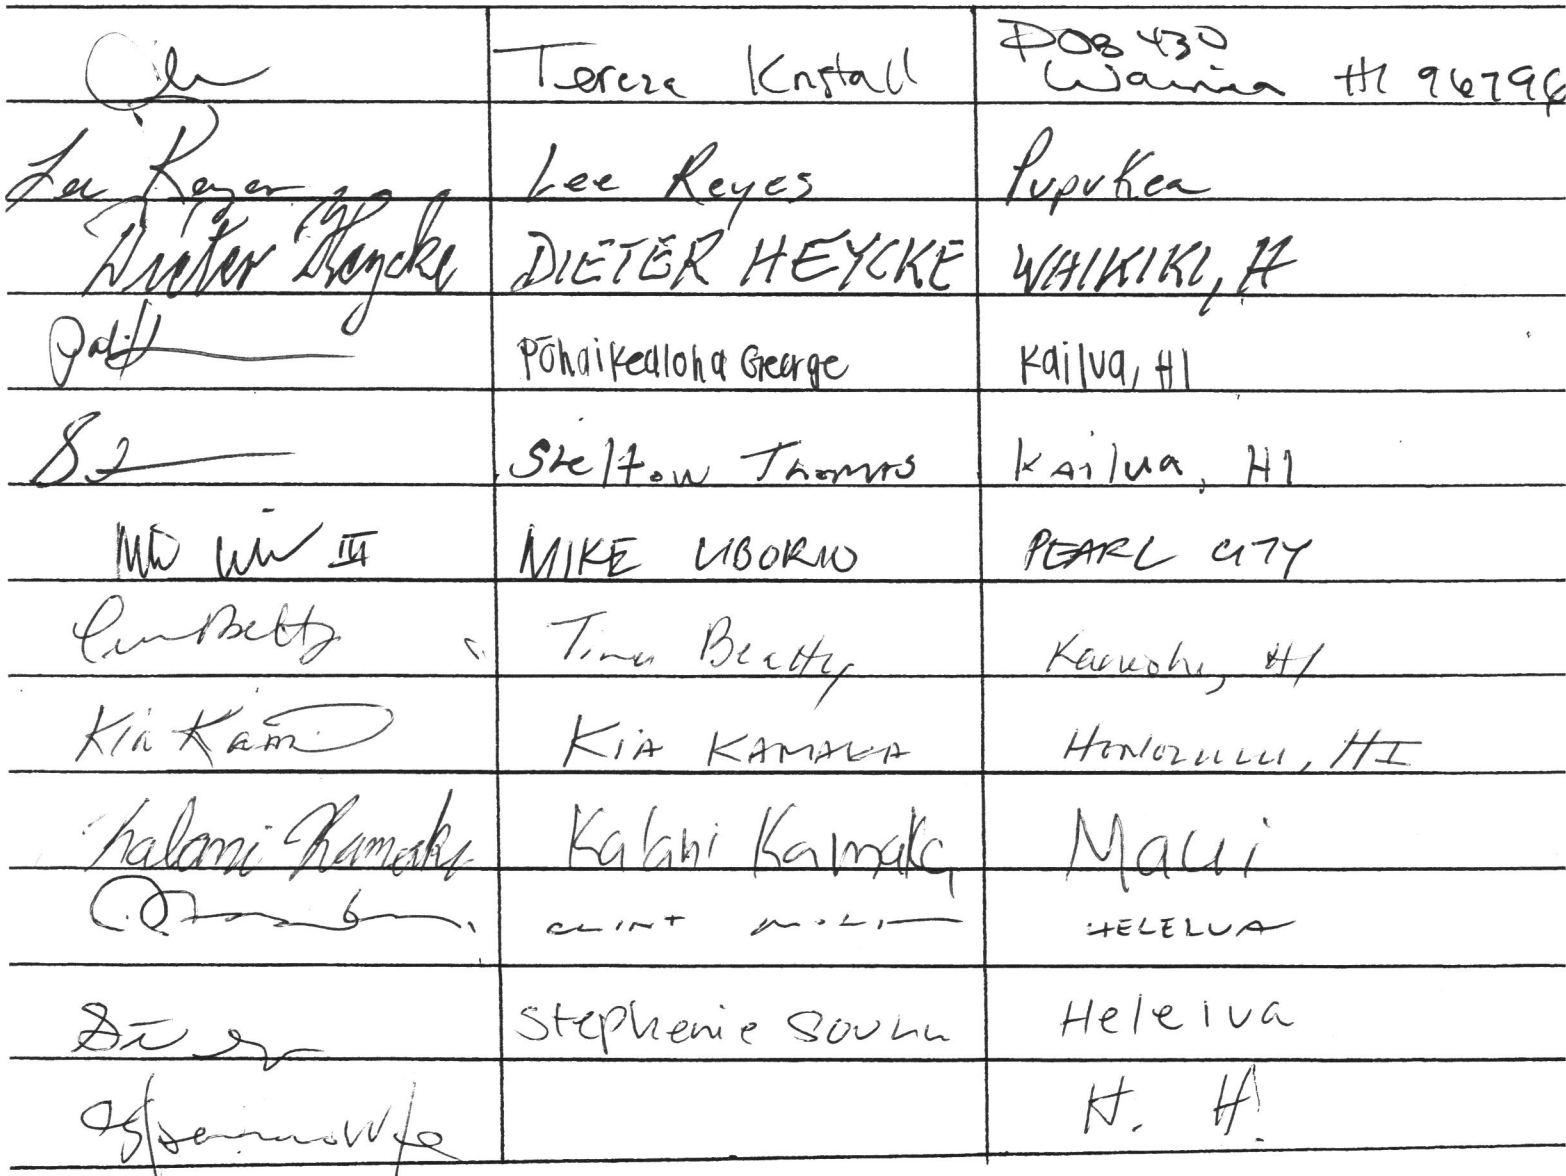 Tereza Kristall
POB 430
Waimea HI 96796
Lee Reyes Lee Reyes Pupukea
Dieter Heycke DIETER HEYCKE WAIKIKI, H
Pōhaikealoha George Kailua, HI
Shelton Thomas Kailua, HI
III MIKE LIBORIO PEARL CITY
Tina Beatty Kaneohe, HI
Kia Kam KIA KAMAKA HONOLULU, HI
Kalani Kamaka Kalani Kamaka Maui
CLINT HELEIUA
Stephenie Heleiua
H. H.